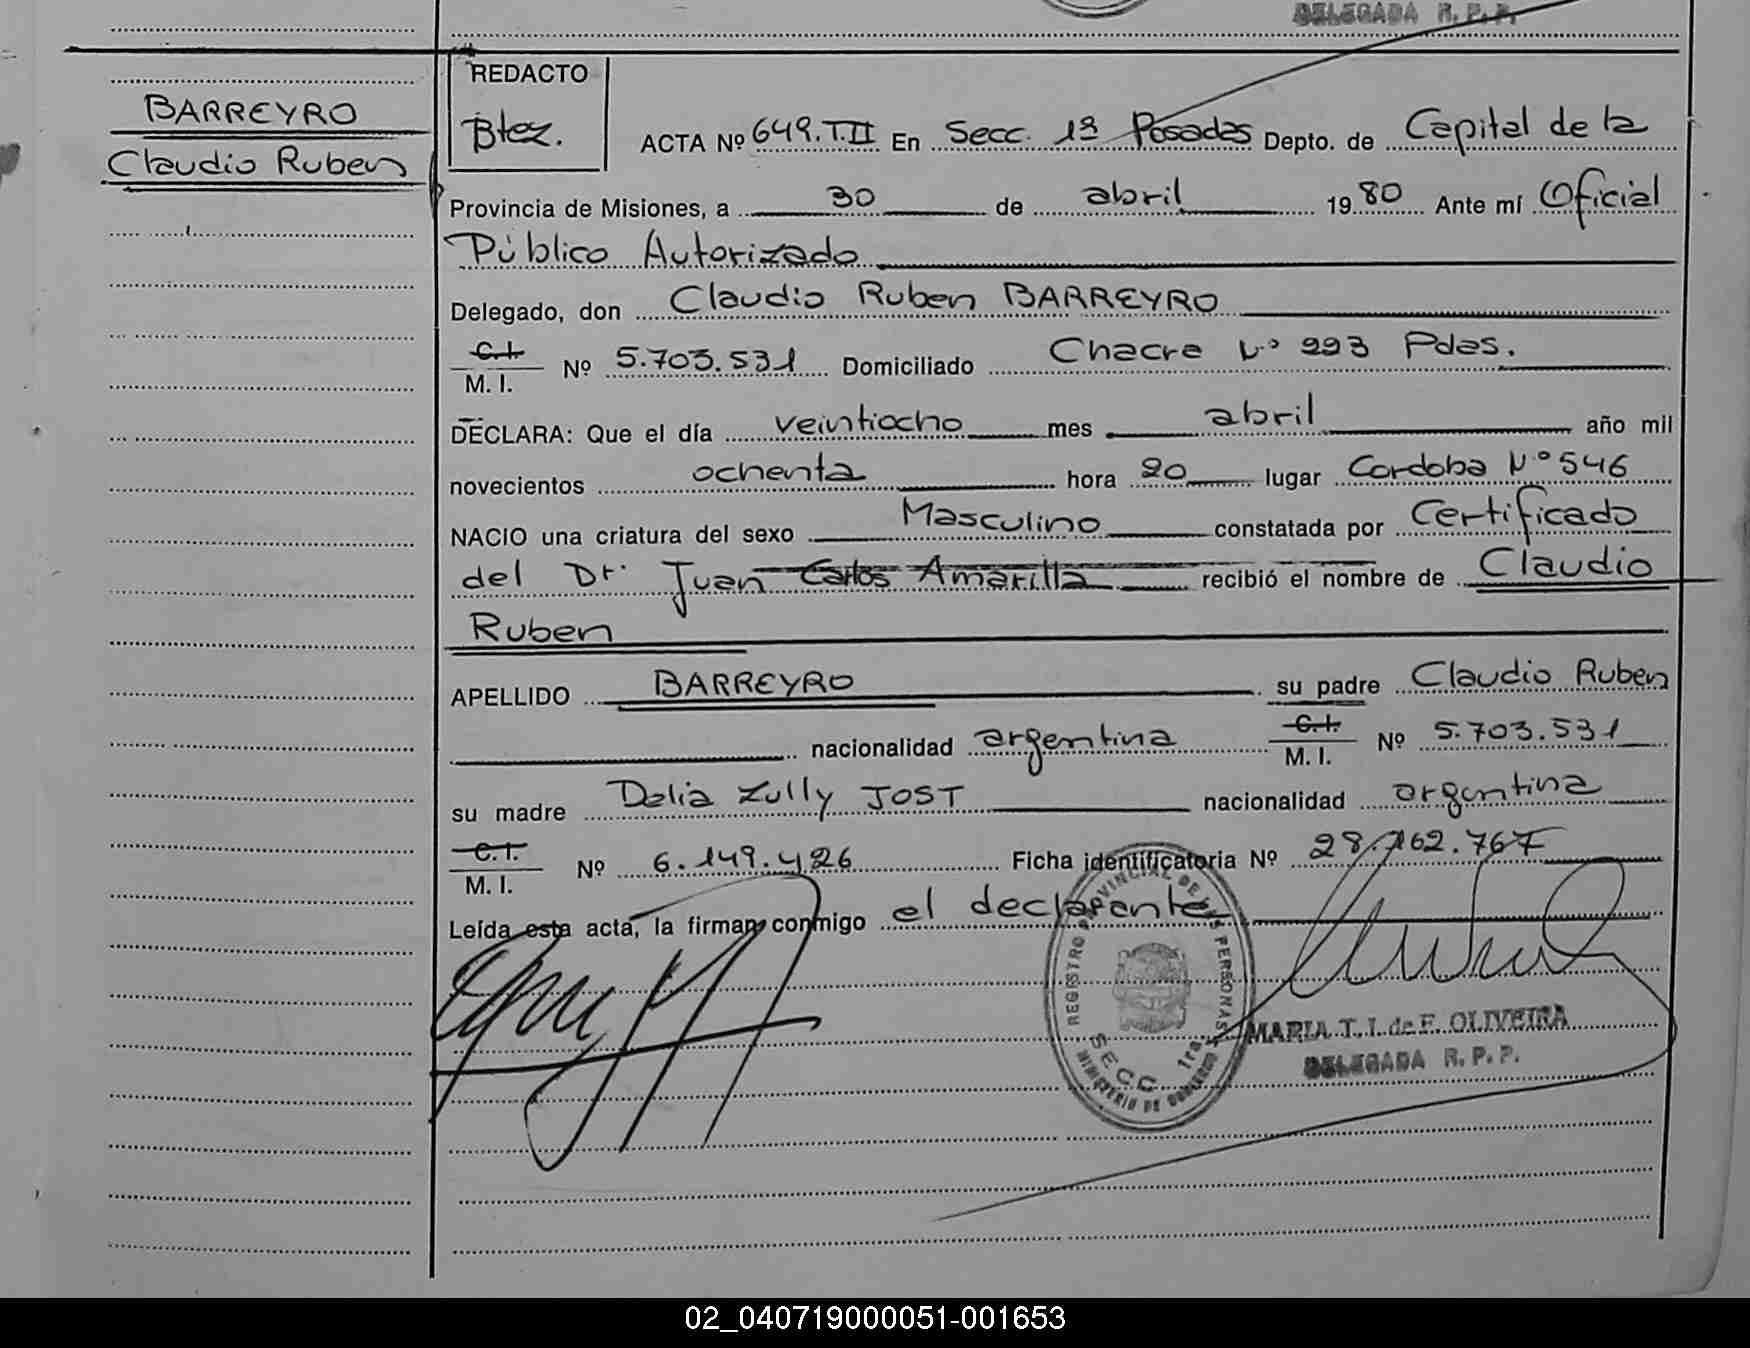 DELEGADA R. P. P.
BARREYRO
Claudio Ruben
REDACTO
Btez.
ACTA Nº 649.T.II En Secc. 1ª Posadas Depto. de Capital de la
Provincia de Misiones, a 30 de abril 1980 Ante mí Oficial
Público Autorizado
Delegado, don Claudio Ruben BARREYRO
C.I.
M. I. Nº 5.703.531 Domiciliado Chacra Nº 293 Pdas.
DECLARA: Que el día veintiocho mes abril año mil
novecientos ochenta hora 20 lugar Cordoba Nº 546
NACIO una criatura del sexo Masculino constatada por Certificado
del Dr. Juan Carlos Amarilla recibió el nombre de Claudio
Ruben
APELLIDO BARREYRO su padre Claudio Ruben
nacionalidad argentina C.I. M. I. Nº 5.703.531
su madre Delia Zully JOST nacionalidad argentina
C.I.
M. I. Nº 6.149.426 Ficha identificatoria Nº 28.162.767
Leída esta acta, la firman conmigo el declarante
REGISTRO PROVINCIAL DE LAS PERSONAS
SECC. 1ra.
MINISTERIO DE GOBIERNO
MARIA T. I. de F. OLIVEIRA
DELEGADA R. P. P.
02_040719000051-001653